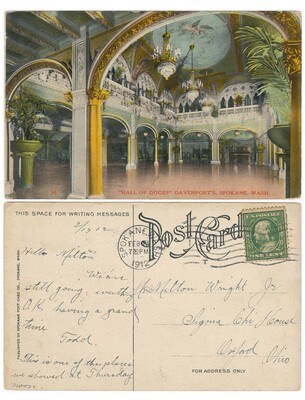 "HALL OF DOGES" DAVENPORT'S, SPOKANE, WASH.
THIS SPACE FOR WRITING MESSAGES
Post Card
2/13 12.
SPOKANE
FEB
7 PM
1912
U.S. POSTAGE
ONE CENT
Hello Milton
We are
still going, everth
O.K. having a grand
time
Todd.
This is one of the places
we showed at Thursday
noon.
Milton Wright Jr
Sigma Chi House
Oxford
Ohio
FOR ADDRESS ONLY
PUBLISHED BY SPOKANE POST CARD CO., SPOKANE, WASH.